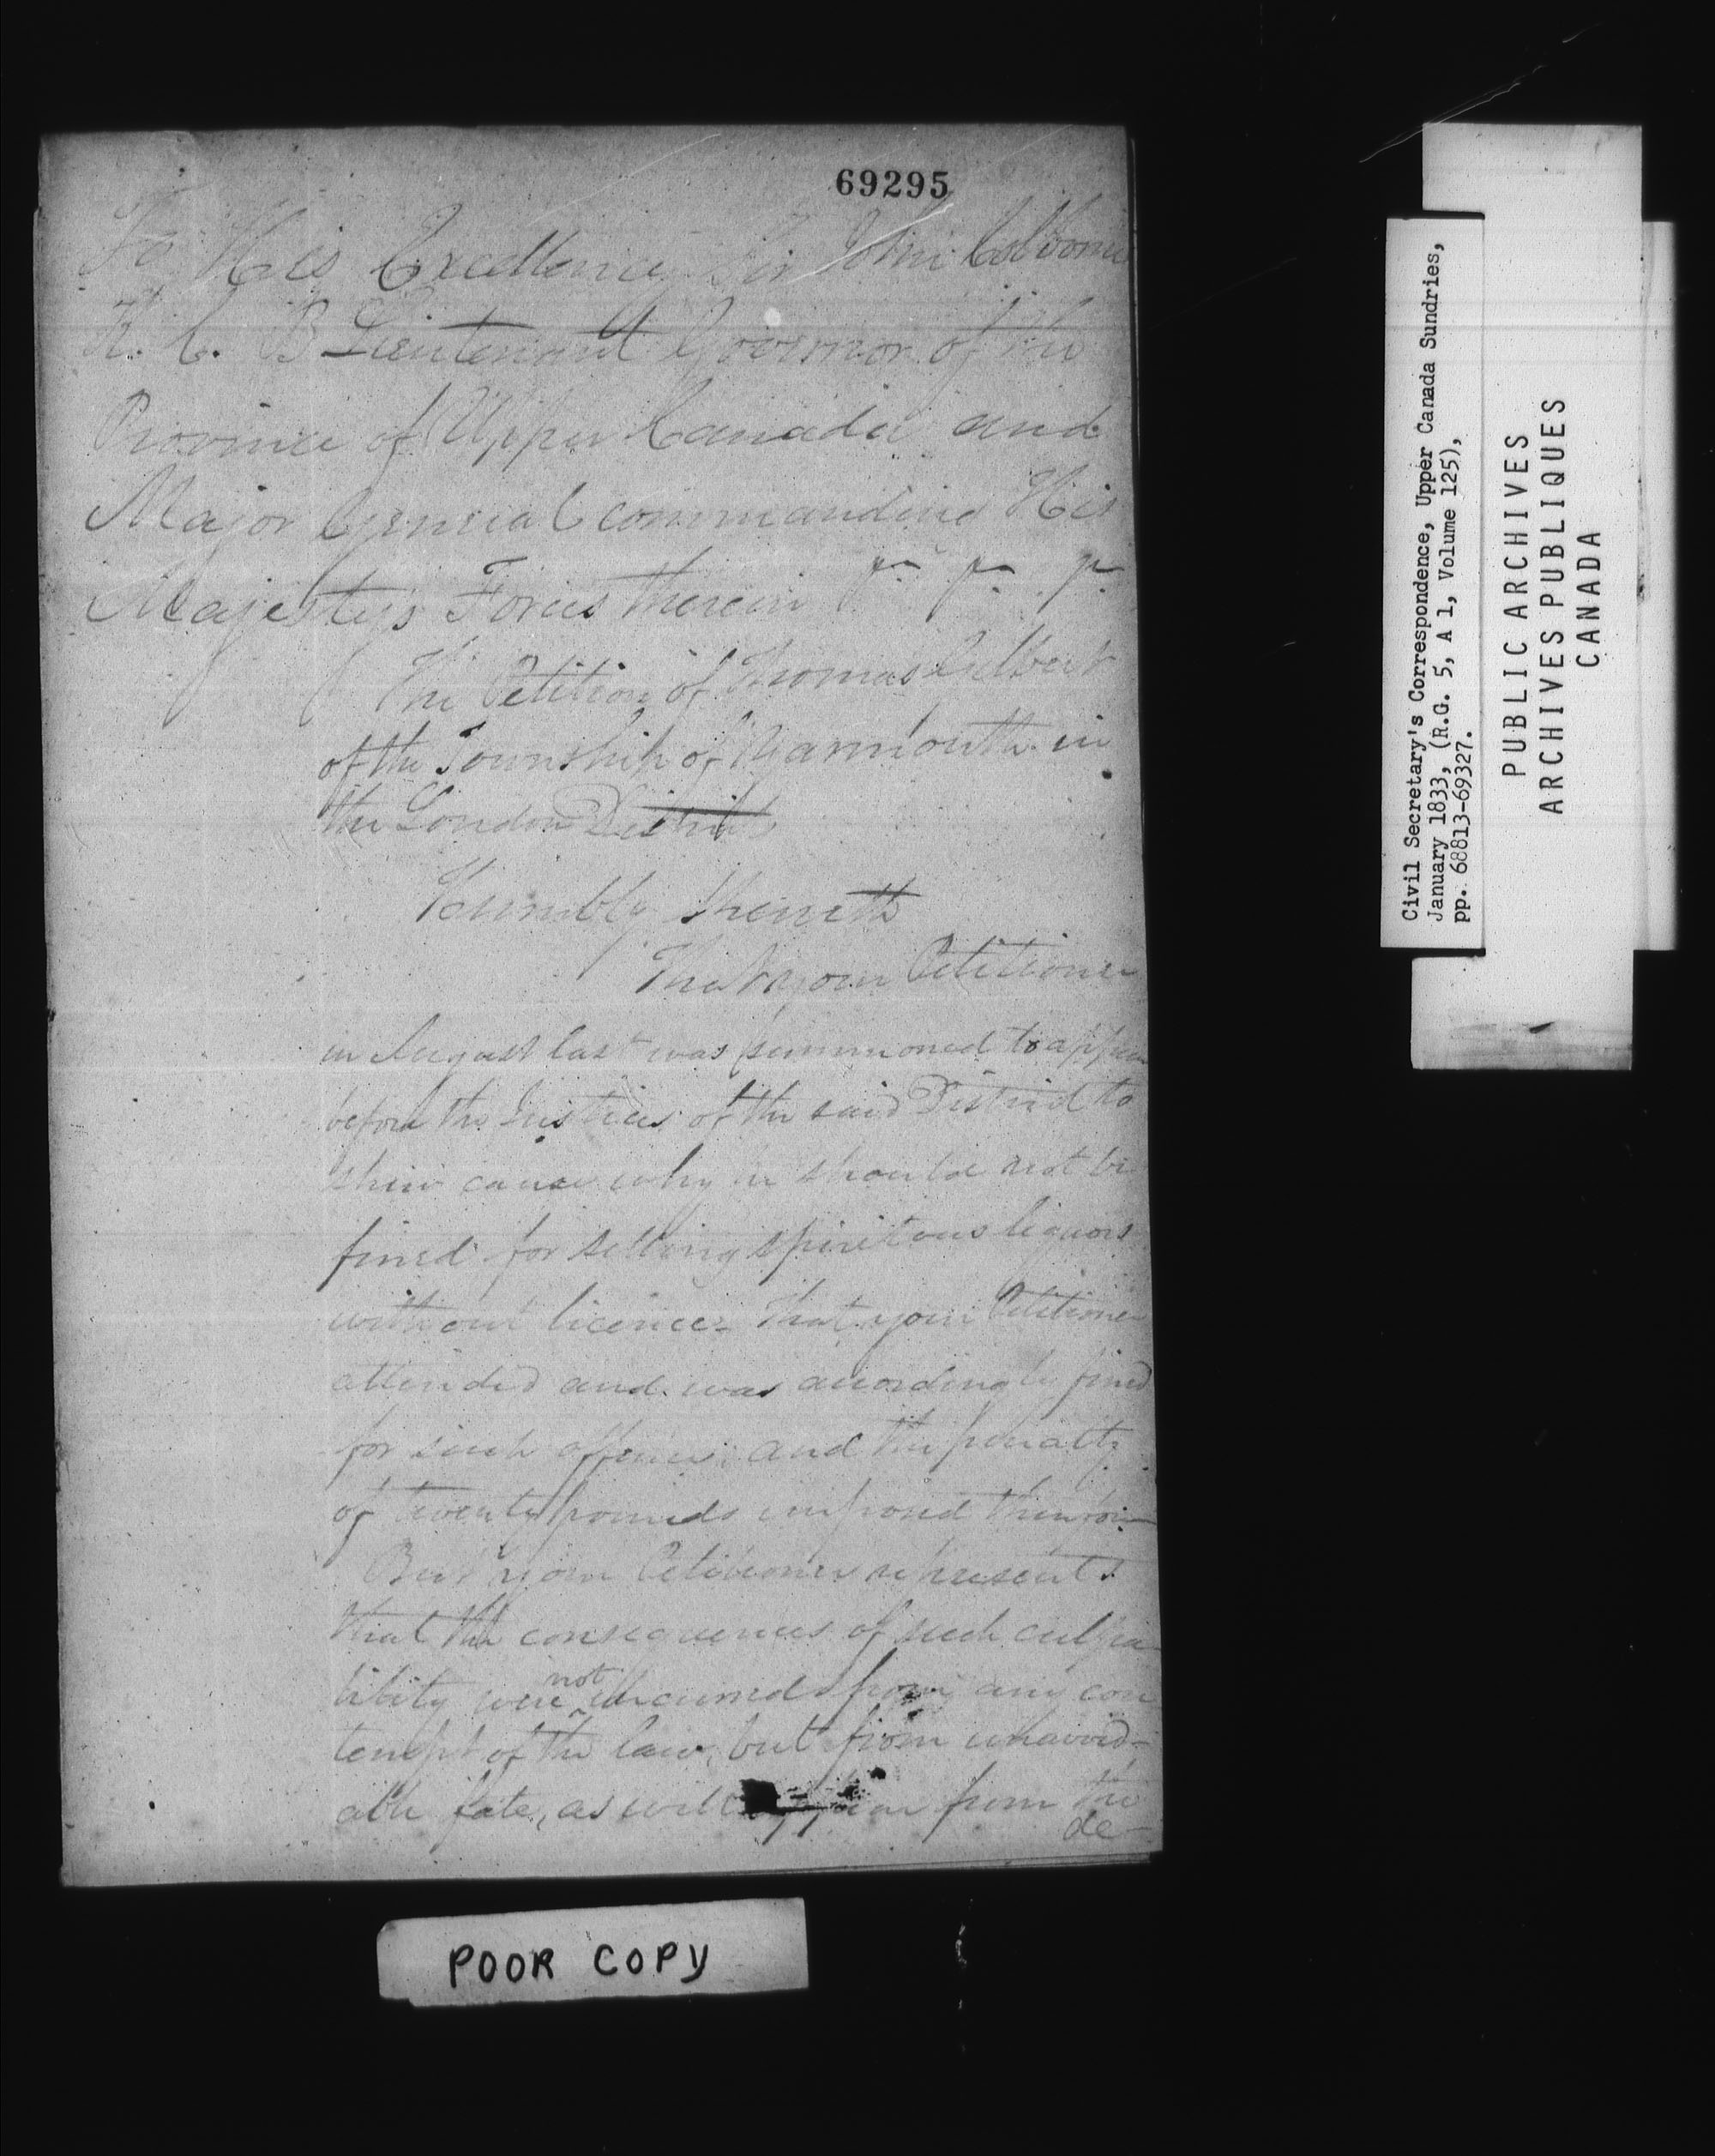 69295
To His Excellency Sir John Colborne
K. C. B Lieutenant Governor of the
Province of Upper Canada and
Major General commanding His
Majesty's Forces therein &c &c &c
The Petition of Thomas
of the Township of Yarmouth in
the London District
Humbly sheweth
That your Petitioner
in August last was summoned to appear
before the Justices of the said District to
shew cause why he should not be
fined for selling spiritous liquors
without licence= That your Petitioner
attended and was accordingly fined
for such offence; and the penalty
of twenty pounds imposed thereon—
But your Petitioner represents
that the consequences of such culpa
bility were not incurred from any con
tempt of the law, but from unavoid-
able fate, as will appear from the
de-
POOR COPY
Civil Secretary's Correspondence, Upper Canada Sundries,
January 1833, (R.G. 5, A 1, Volume 125),
pp. 68813-69327.
PUBLIC ARCHIVES
ARCHIVES PUBLIQUES
CANADA